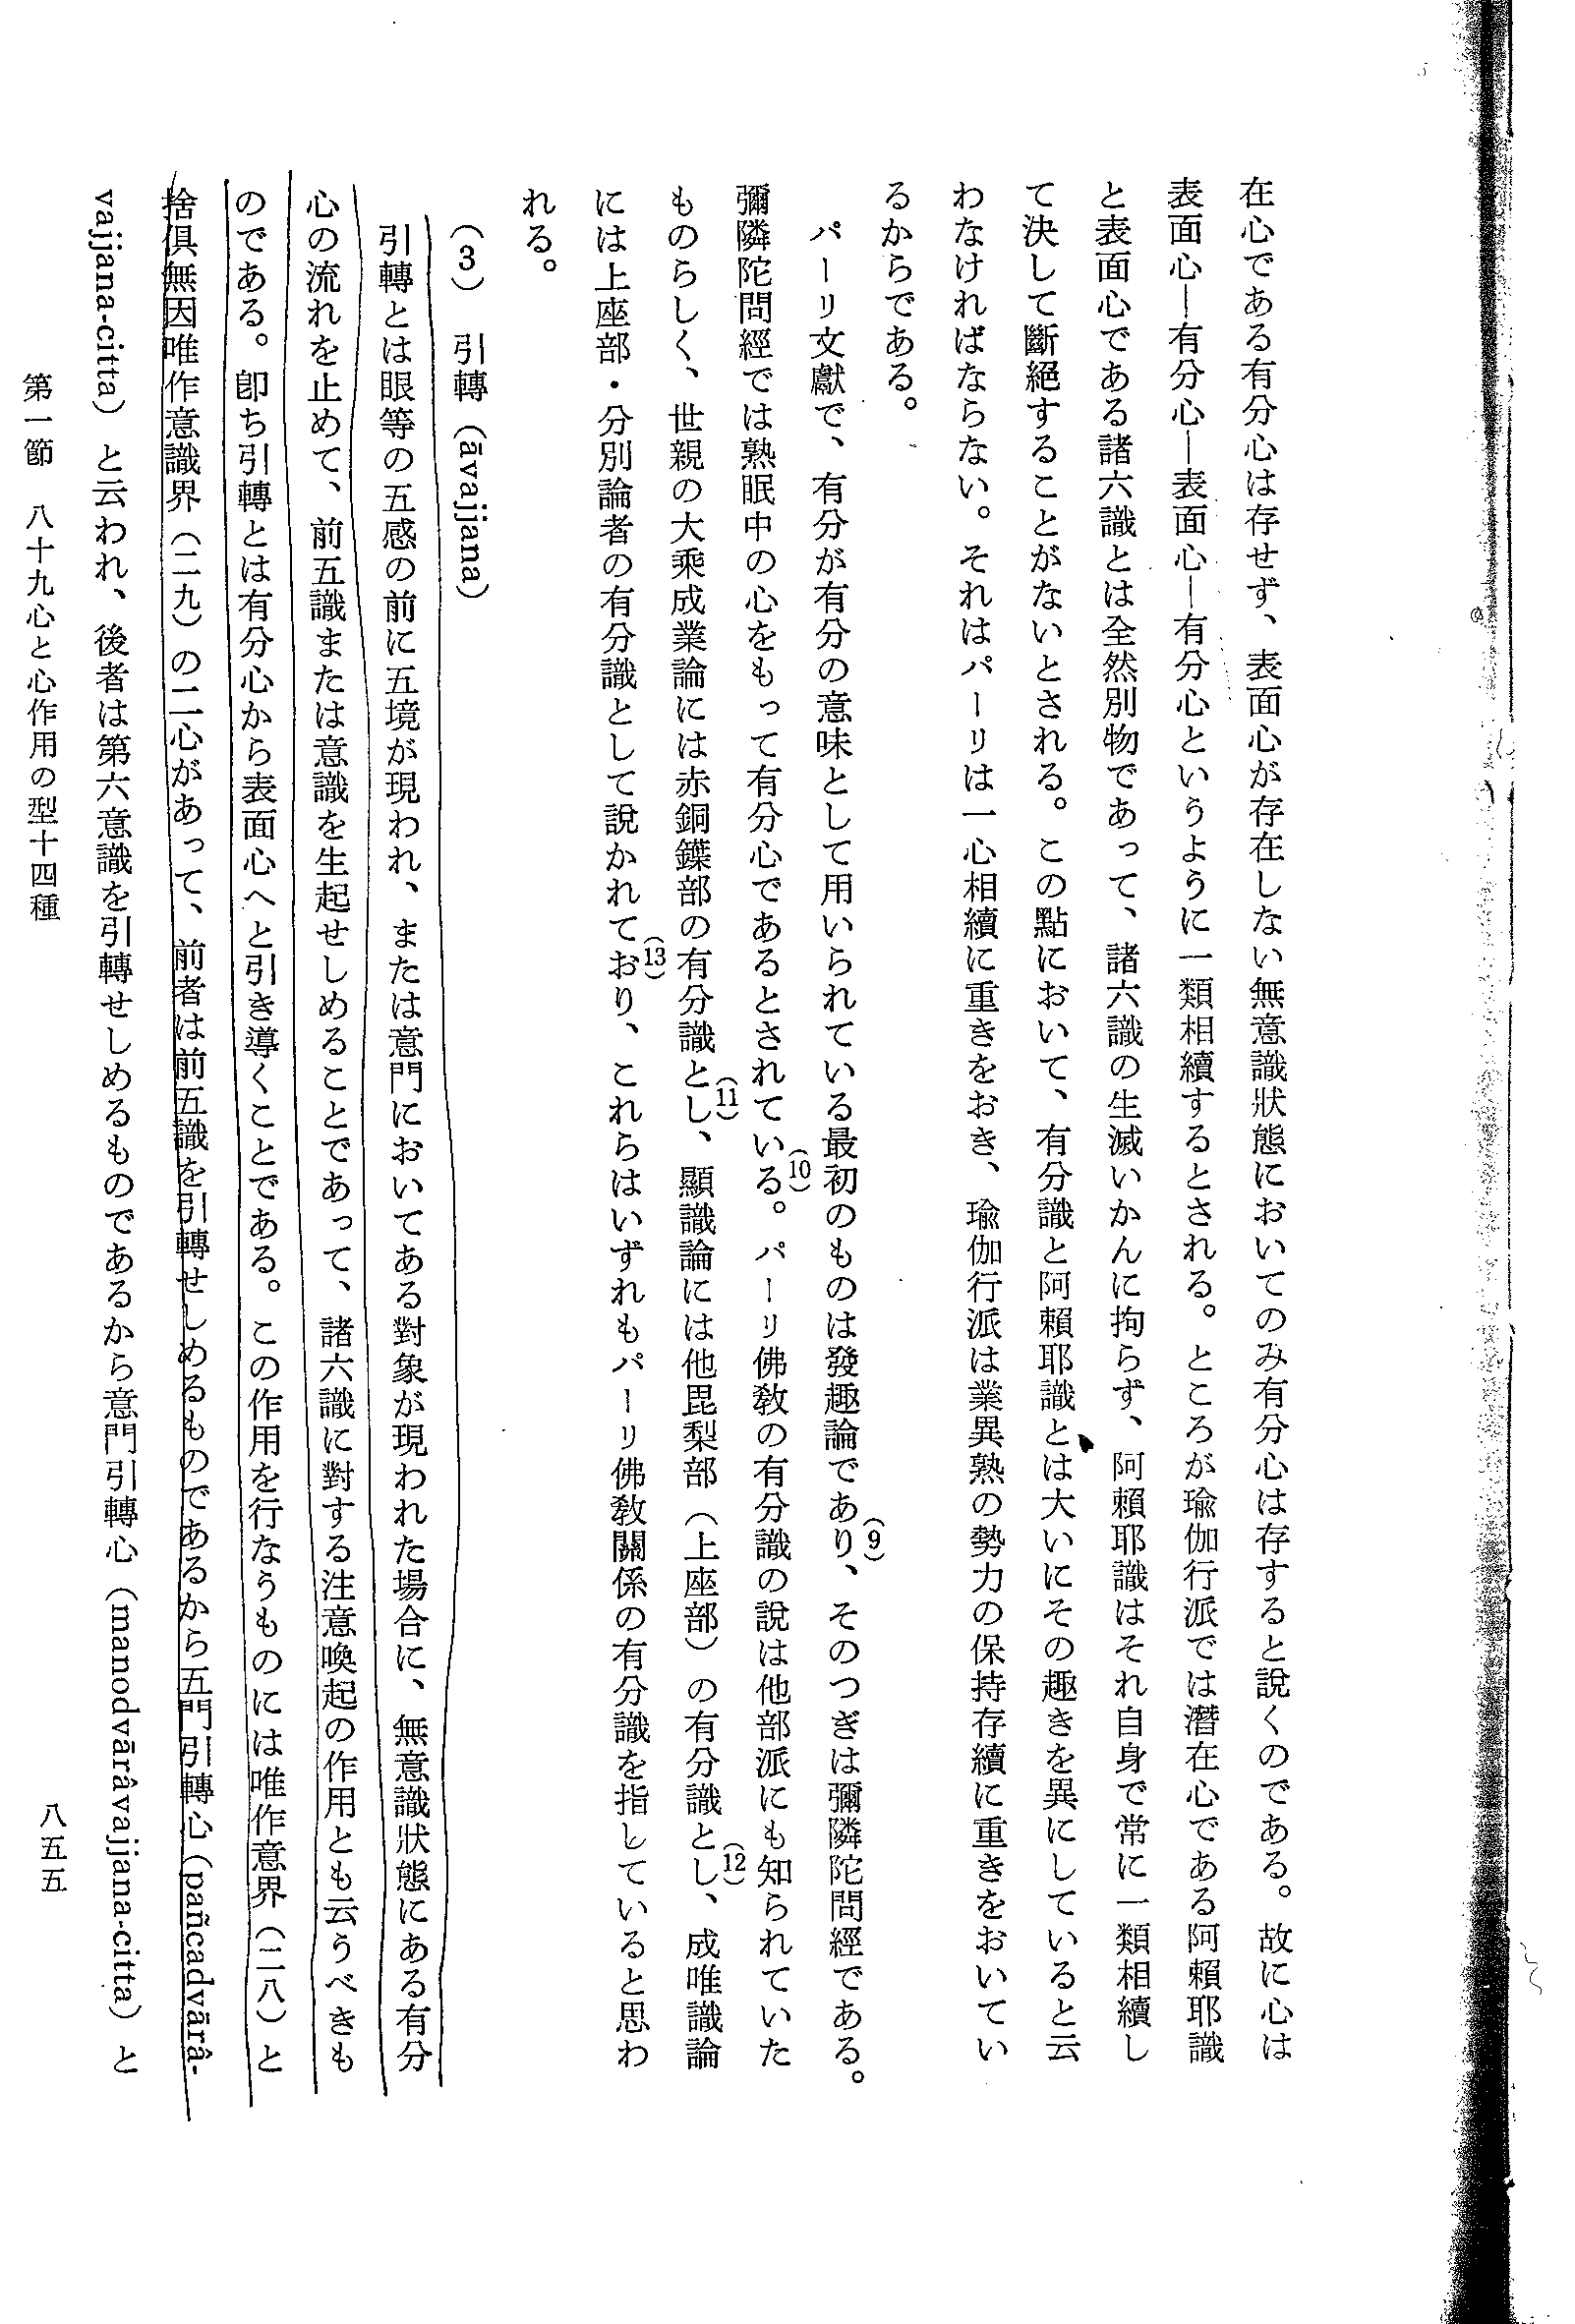 在心である有分心は存せず、表面心が存在しない無意識狀態においてのみ有分心は存すると說くのである。故に心は
表面心―有分心―表面心―有分心というように一類相續するとされる。ところが瑜伽行派では潛在心である阿賴耶識
と表面心である諸六識とは全然別物であって、諸六識の生滅いかんに拘らず、阿賴耶識はそれ自身で常に一類相續し
て決して斷絕することがないとされる。この點において、有分識と阿賴耶識とは大いにその趣きを異にしていると云
わなければならない。それはパーリは一心相續に重きをおき、瑜伽行派は業異熟の勢力の保持存續に重きをおいてい
るからである。
パーリ文獻で、有分が有分の意味として用いられている最初のものは發趣論であり(9)、そのつぎは彌隣陀問經である。
彌隣陀問經では熟眠中の心をもって有分心であるとされている(10)。パーリ佛敎の有分識の說は他部派にも知られていた
ものらしく、世親の大乘成業論には赤銅鍱部の有分識とし(11)、顯識論には他毘梨部（上座部）の有分識とし(12)、成唯識論
には上座部・分別論者の有分識として說かれており(13)、これらはいずれもパーリ佛敎關係の有分識を指していると思わ
れる。
（3）　引轉（āvajjana）
引轉とは眼等の五感の前に五境が現われ、または意門においてある對象が現われた場合に、無意識狀態にある有分
心の流れを止めて、前五識または意識を生起せしめることであって、諸六識に對する注意喚起の作用とも云うべきも
のである。卽ち引轉とは有分心から表面心へと引き導くことである。この作用を行なうものには唯作意界（二八）と
捨俱無因唯作意識界（二九）の二心があって、前者は前五識を引轉せしめるものであるから五門引轉心（pañcadvārâ-
vajjana-citta）と云われ、後者は第六意識を引轉せしめるものであるから意門引轉心（manodvārâvajjana-citta）と
第一節　八十九心と心作用の型十四種
八五五